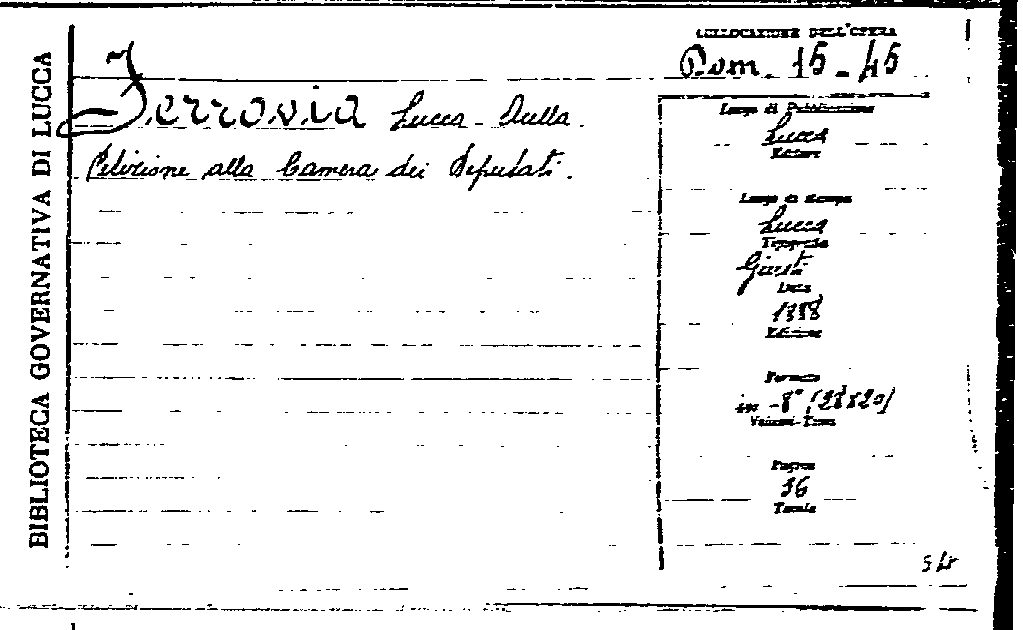 BIBLIOTECA GOVERNATIVA DI LUCCA
COLLOCAZIONE DELL'OPERA
Pom. 15-45
Ferrovia Lucca-Aulla.
Petizione alla Camera dei Deputati.
Luogo di Pubblicazione
Lucca
Editore
Luogo di stampa
Lucca
Tipografia
Giusti
Data
1888
Edizione
Formato
in-8° (28x20)
Volumi-Tomi
Pagine
36
Tavole